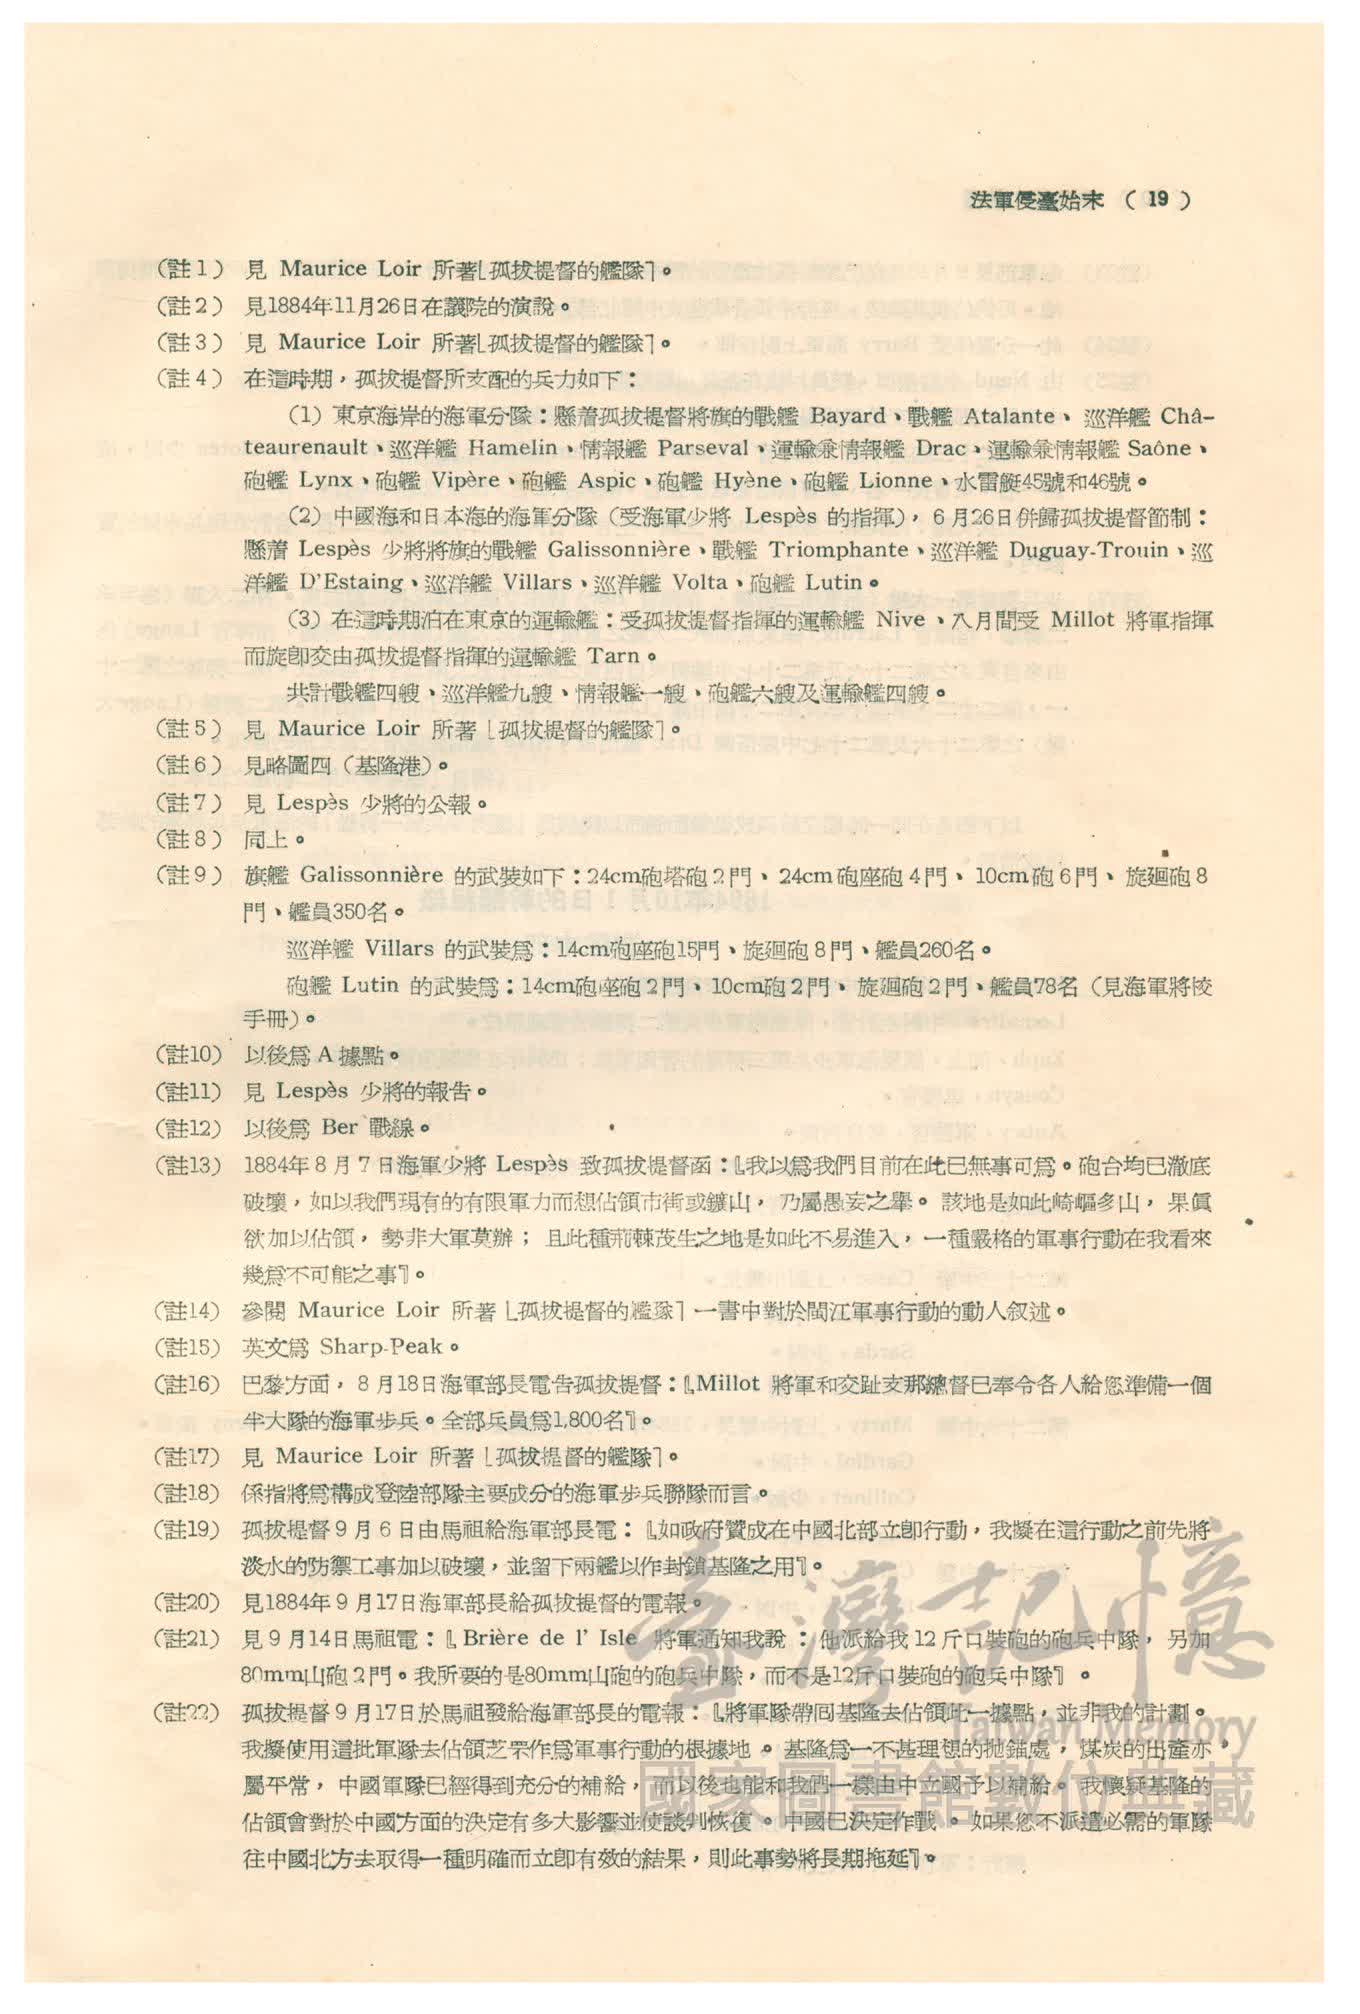 法軍侵臺始末 （19）
（註1） 見 Maurice Loir 所著⌊孤拔提督的艦隊⌉。
（註2） 見1884年11月26日在議院的演說。
（註3） 見 Maurice Loir 所著⌊孤拔提督的艦隊⌉。
（註4） 在這時期，孤拔提督所支配的兵力如下：
（1）東京海岸的海軍分隊：懸着孤拔提督將旗的戰艦 Bayard、戰艦 Atalante、巡洋艦 Châ-
teaurenault、巡洋艦 Hamelin、情報艦 Parseval、運輸兼情報艦 Drac、運輸兼情報艦 Saône、
砲艦 Lynx、砲艦 Vipère、砲艦 Aspic、砲艦 Hyène、砲艦 Lionne、水雷艇45號和46號。
（2）中國海和日本海的海軍分隊（受海軍少將 Lespès 的指揮），6月26日併歸孤拔提督節制：
懸着 Lespès 少將將旗的戰艦 Galissonnière、戰艦 Triomphante、巡洋艦 Duguay-Trouin、巡
洋艦 D'Estaing、巡洋艦 Villars、巡洋艦 Volta、砲艦 Lutin。
（3）在這時期泊在東京的運輸艦：受孤拔提督指揮的運輸艦 Nive、八月間受 Millot 將軍指揮
而旋卽交由孤拔提督指揮的運輸艦 Tarn。
共計戰艦四艘、巡洋艦九艘、情報艦一艘、砲艦六艘及運輸艦四艘。
（註5） 見 Maurice Loir 所著⌊孤拔提督的艦隊⌉。
（註6） 見略圖四（基隆港）。
（註7） 見 Lespès 少將的公報。
（註8） 同上。
（註9） 旗艦 Galissonnière 的武裝如下：24cm砲塔砲2門、24cm砲座砲4門、10cm砲6門、旋廻砲8
門、艦員350名。
巡洋艦 Villars 的武裝爲：14cm砲座砲15門、旋廻砲8門、艦員260名。
砲艦 Lutin 的武裝爲：14cm砲座砲2門、10cm砲2門、旋廻砲2門、艦員78名（見海軍將校
手冊）。
（註10） 以後爲 A 據點。
（註11） 見 Lespès 少將的報告。
（註12） 以後爲 Ber 戰線。
（註13） 1884年8月7日海軍少將 Lespès 致孤拔提督函：『我以爲我們目前在此已無事可爲。砲台均已澈底
破壞，如以我們現有的有限軍力而想佔領市街或鑛山，乃屬愚妄之舉。該地是如此崎嶇多山，果眞
欲加以佔領，勢非大軍莫辦；且此種荊棘茂生之地是如此不易進入，一種嚴格的軍事行動在我看來
幾爲不可能之事』。
（註14） 參閱 Maurice Loir 所著⌊孤拔提督的艦隊⌉一書中對於閩江軍事行動的動人叙述。
（註15） 英文爲 Sharp-Peak。
（註16） 巴黎方面，8月18日海軍部長電告孤拔提督：『Millot 將軍和交趾支那總督已奉令各人給您準備一個
半大隊的海軍步兵。全部兵員爲1,800名』。
（註17） 見 Maurice Loir 所著⌊孤拔提督的艦隊⌉。
（註18） 係指將爲構成登陸部隊主要成分的海軍步兵聯隊而言。
（註19） 孤拔提督9月6日由馬祖給海軍部長電：『如政府贊成在中國北部立卽行動，我擬在這行動之前先將
淡水的防禦工事加以破壞，並留下兩艦以作封鎖基隆之用』。
（註20） 見1884年9月17日海軍部長給孤拔提督的電報。
（註21） 見9月14日馬祖電：『Brière de l' Isle 將軍通知我說：他派給我12斤口裝砲的砲兵中隊，另加
80mm山砲2門。我所要的是80mm山砲的砲兵中隊，而不是12斤口裝砲的砲兵中隊』。
（註22） 孤拔提督9月17日於馬祖發給海軍部長的電報：『將軍隊帶回基隆去佔領此一據點，並非我的計劃。
我擬使用這批軍隊去佔領芝罘作爲軍事行動的根據地。基隆爲一不甚理想的抛錨處，煤炭的出產亦
屬平常，中國軍隊已經得到充分的補給，而以後也能和我們一樣由中立國予以補給。我懷疑基隆的
佔領會對於中國方面的決定有多大影響並使談判恢復。中國已決定作戰。如果您不派遣必需的軍隊
往中國北方去取得一種明確而立卽有效的結果，則此事勢將長期拖延』。
臺灣記憶
Taiwan Memory
國家圖書館數位典藏